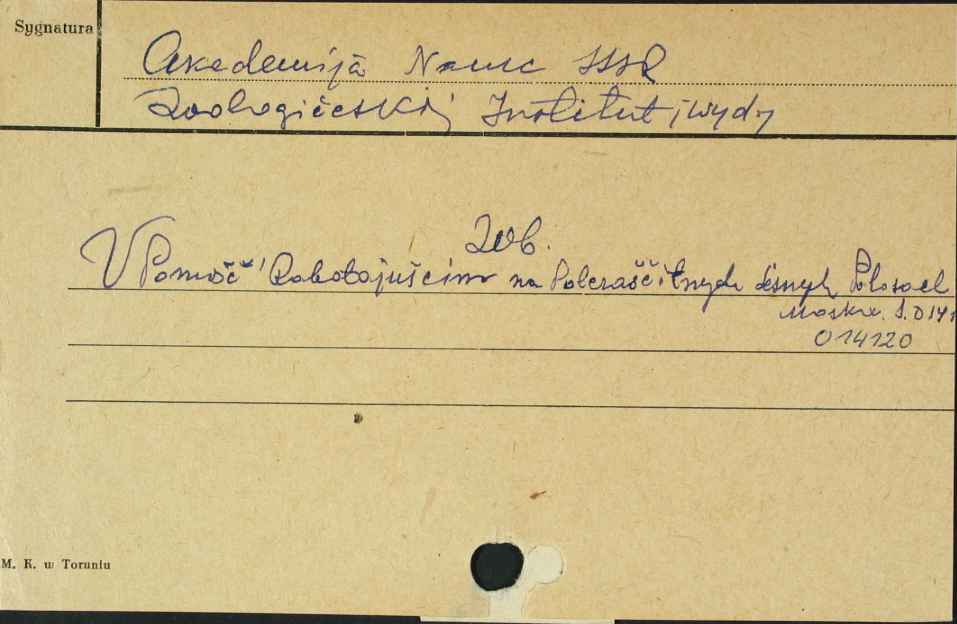 Sygnatura
Akademijā Nauk SSSR
Zoologičeskij Institut; wydz
Zob.
V Pomošč' Rabotajuščim na Polezaščitnych lesnych Polosach
Moskva.
014120
M. K. w Toruniu